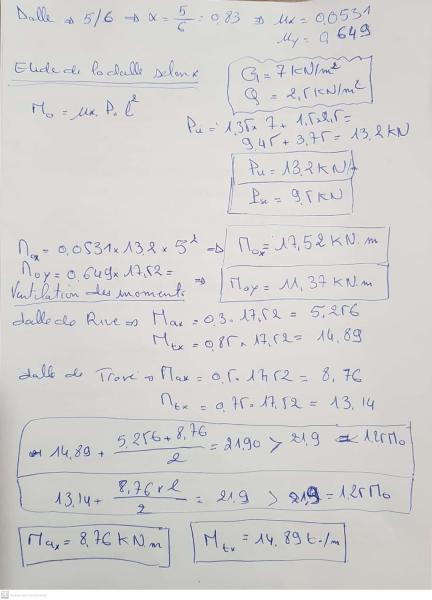 Dalle ⇒ 5/6 ⇒ α = 5/6 = 0,83 ⇒ μx = 0,0531
μy = 0,649
Etude de la dalle selon x
G = 7 KN/m²
Q = 2,5 KN/m²
M₀ = μx. Pu l²
Pu = 1,35x7 + 1,5x2,5 =
9,45 + 3,75 = 13,2 KN
Pu = 13,2 KN/
= 9,5 KN
Mox = 0,0531 x 13,2 x 5² ⇒ Mox = 17,52 KN.m
Moy = 0,649 x 17,52 = ⇒ Moy = 11,37 KN.m
Ventilation des moments
dalle de Rive ⇒ Max = 0,3 . 17,52 = 5,256
Mtx = 0,85 . 17,52 = 14,89
dalle de Travé ⇒ Max = 0,5 . 17,52 = 8,76
Mtx = 0,75 . 17,52 = 13,14
14,89 + (5,256 + 8,76)/2 = 21,90 > 21,9 = 1,25 M₀
13,14 + (8,76 x 2)/2 = 21,9 > 21,9 = 1,25 M₀
Max = 8,76 KN.m
Mtx = 14,89 t./m